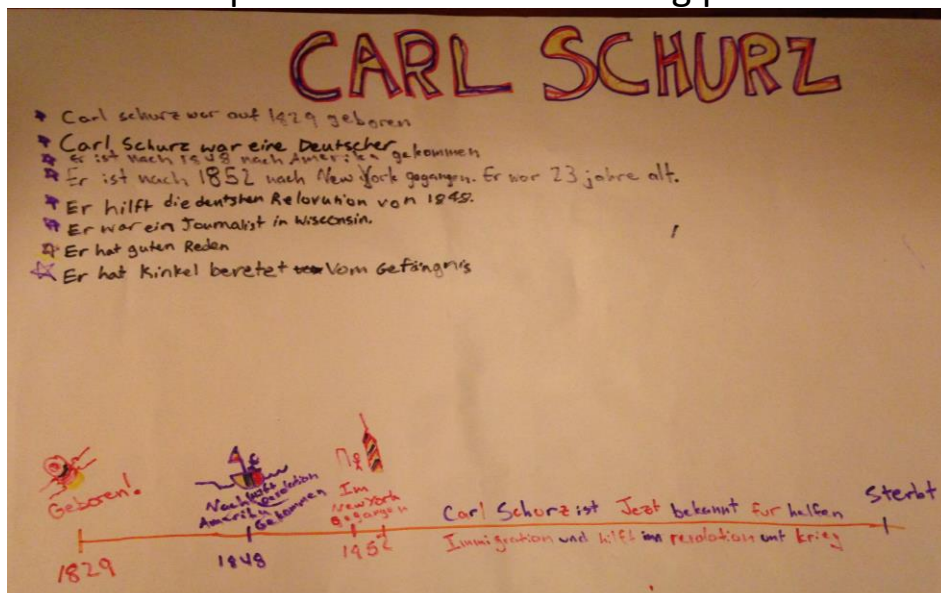 CARL SCHURZ
Carl schurz war auf 1829 geboren
Carl Schurz war eine Deutscher
Er ist nach 1848 nach Amerika gekommen
Er ist nach 1852 nach New York gegangen. Er war 23 jahre alt.
Er hilft die deutshen Relovution von 1848.
Er war ein Journalist in Wisconsin.
Er hat guten Reden
Er hat Kinkel beretet vom Gefängnis
Geboren!
Nach
Amerika
Gekommen
Im
New York
gegangen
Carl Schurz ist Jezt bekannt fur helfen
Immigration und hilft
krieg
Sterbt
1829
1848
1852